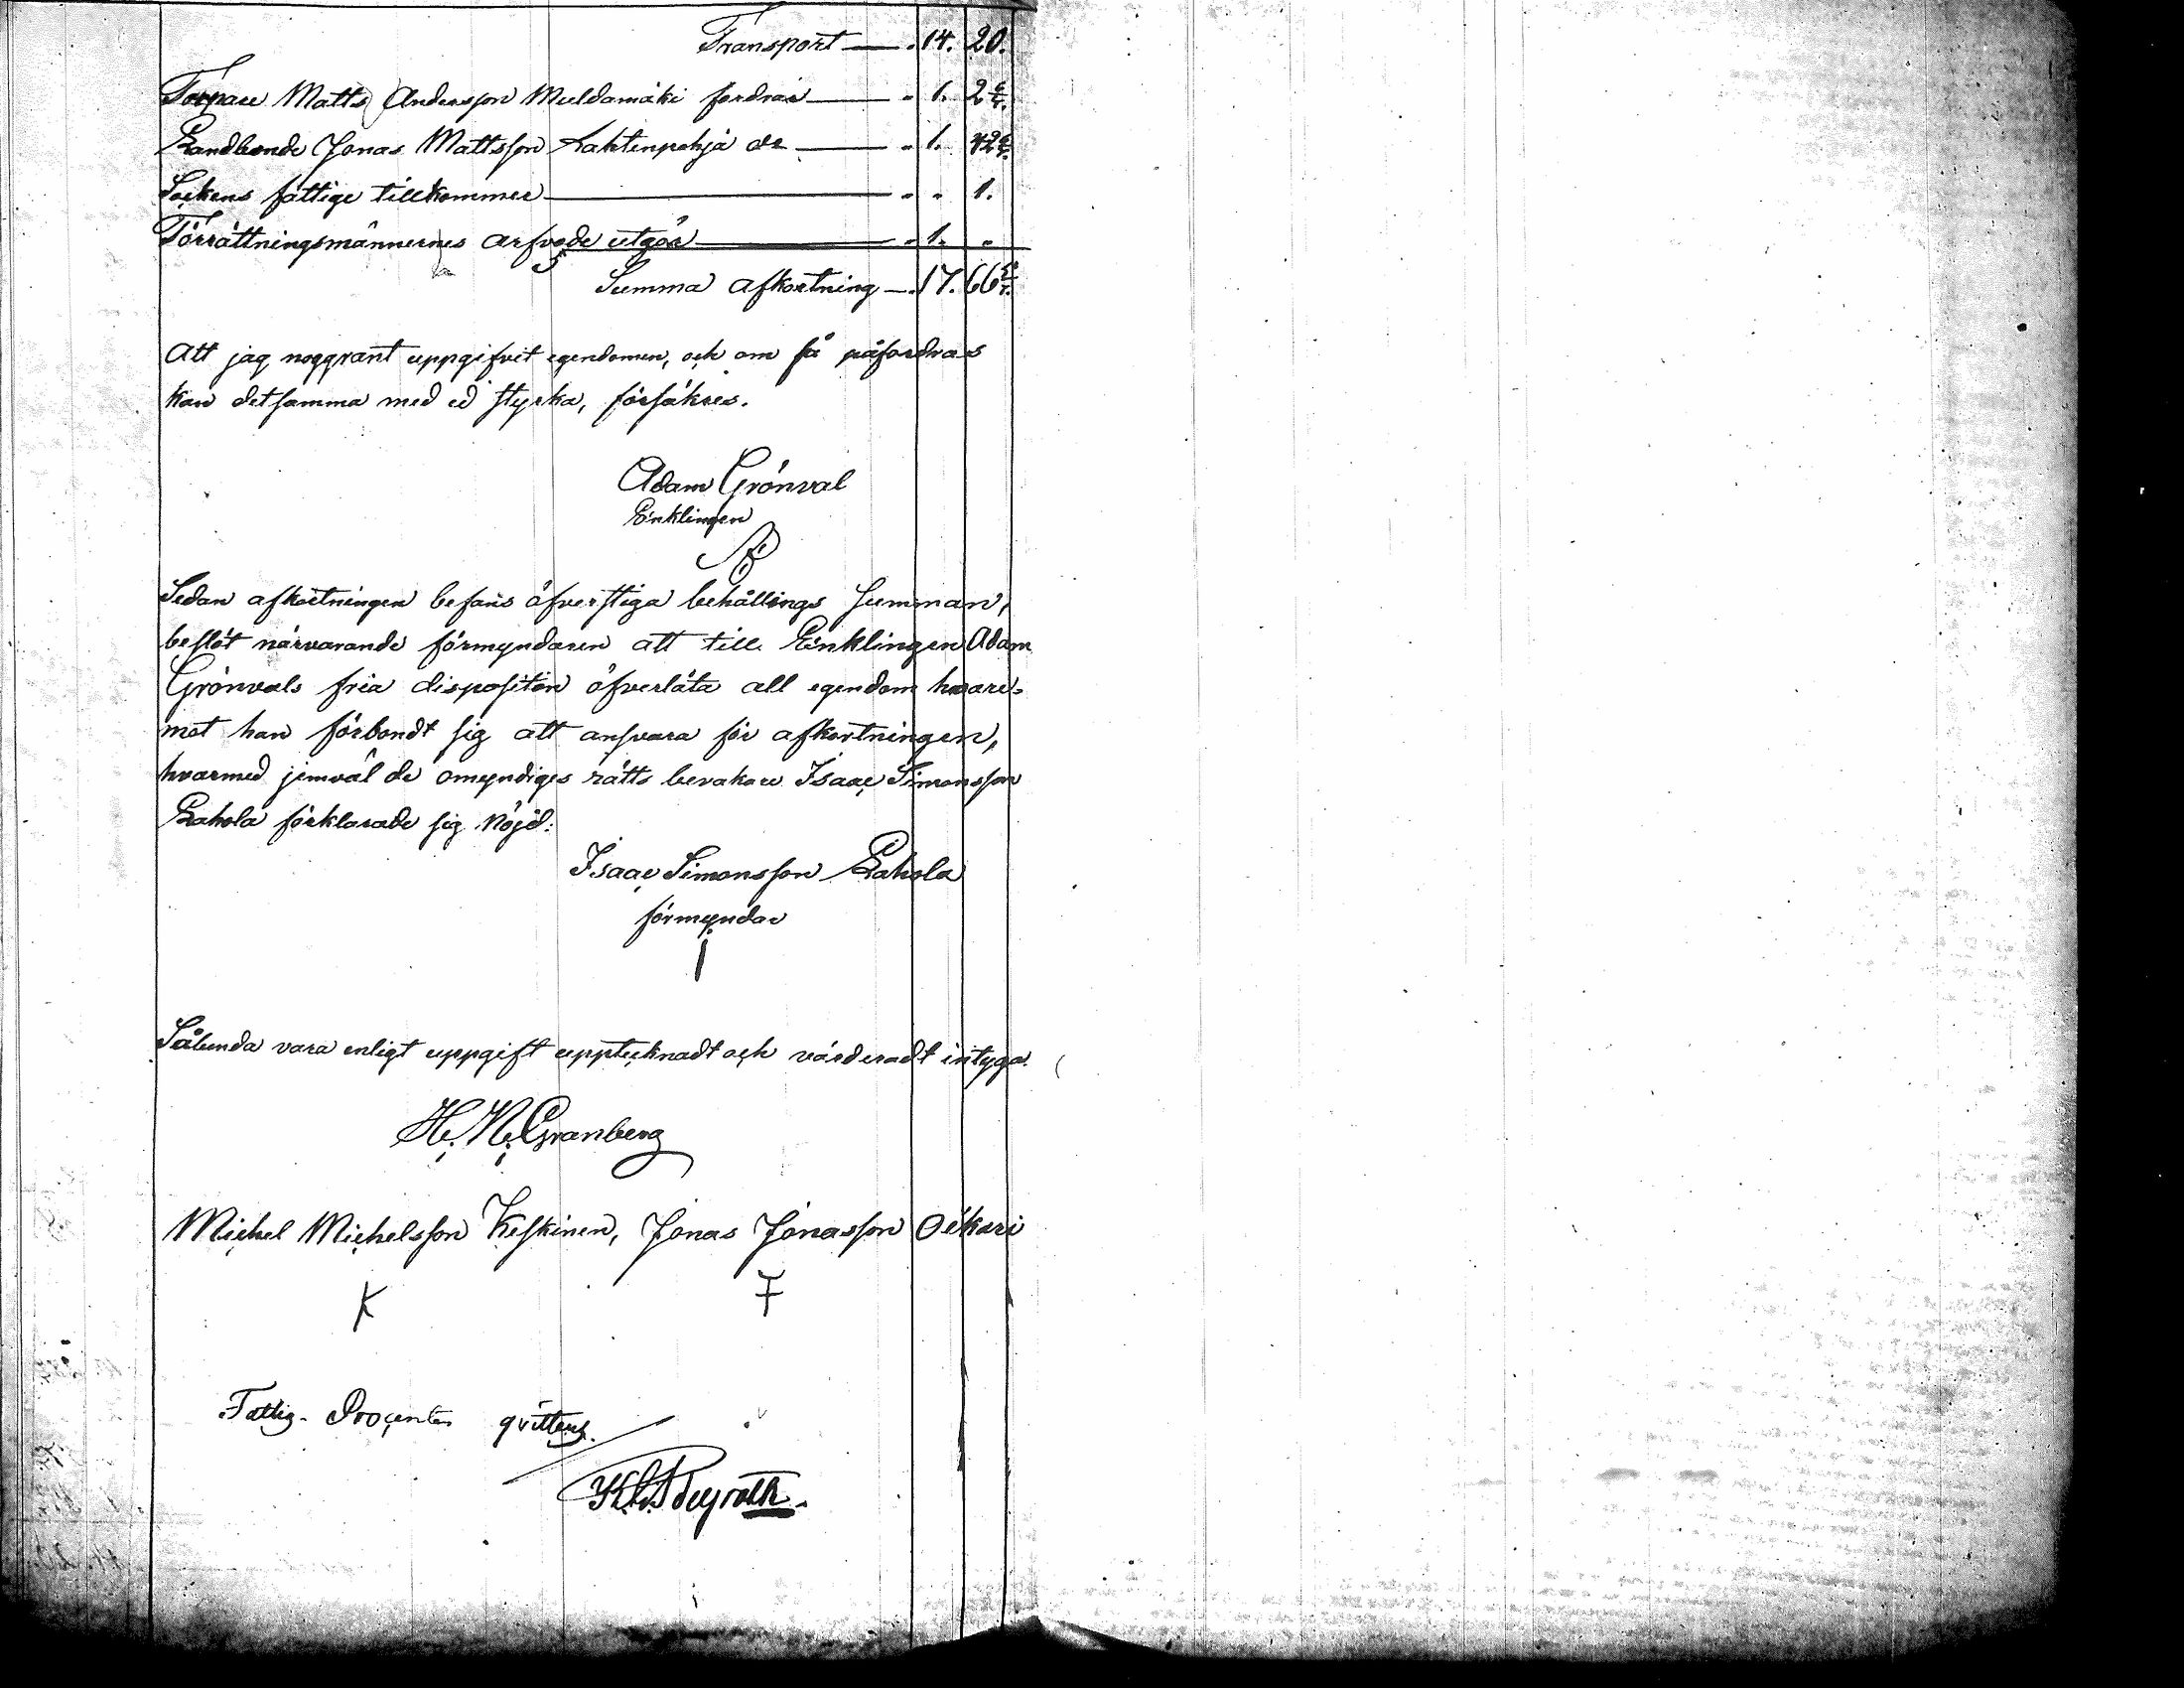 Transport — " 14. 20.
Torpare Matts Andersson Muldamäki fordrar — " 1. 2 6/7.
Landbonde Jonas Mattsson Lahtenpohja do — " 1. 42 6/7.
Sockens fattige tillkommer — " " 1.
Förrättningsmännernes arfvode utgör — " 1. "
Summa afkortning — " 17. 66 5/7.
Att jag noggrant uppgifvit egendomen, och om så påfordras
kan detsamma med ed styrka, försäkras.
Adam Grönval
Enklingen
Sedan afkortningen befans öfverstiga behållings summan,
beslöt närvarande förmyndaren att till Enklingen Adam
Grönvals fria disposition öfverlåta all egendom hvare-
mot han förbondt sig att ansvara för afkortningen,
hvarmed jemväl de omyndiges rätts bevakare Isaac Simonsson
Rahola förklarade sig nöjd:
Isaac Simonsson Rahola
förmyndare
Sålunda vara enligt uppgift upptecknadt och värderadt intyga.
H. N. Granberg
Michel Michelsson Keskinen, Jonas Jonasson Oikari
K F
Fattig-Procenten qvitteras.